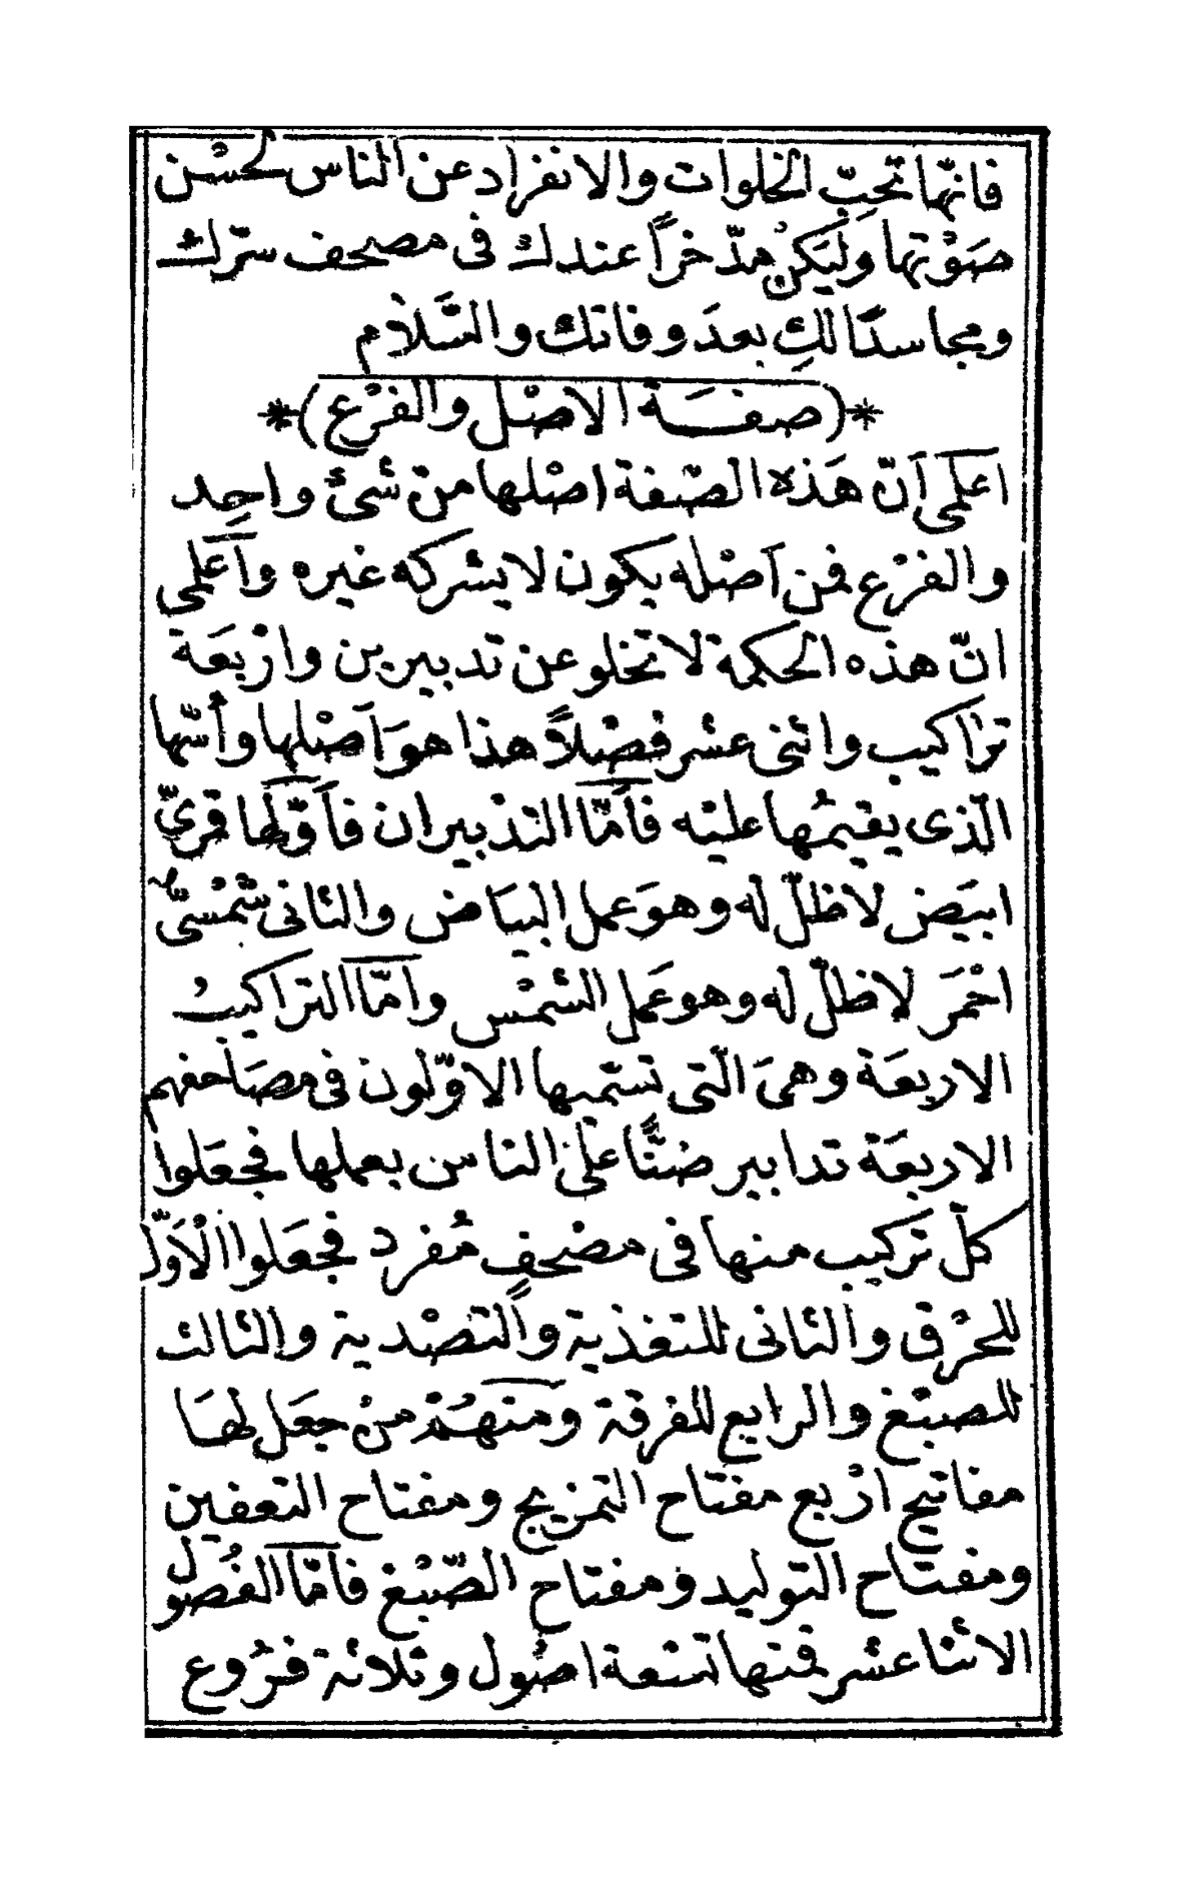 فانّها تحبّ الخلوات والانفراد عن الناس لحسْن
صَوْتها وَليَكنْ مدّخراً عندك فى مصحف سرّك
ومجاسداً لكِ بعدَ وفاتك والسَّلام
*(صفَة الاصْل والفرْع)*
اعلمى أنّ هَذه الصّفة اصْلها منْ شئ واحِد
والفرْع فمن اَصْله يكون لا يشركه غيره واَعْلمى
انّ هذه الحكمة لا تخلو عن تدبيرين وارْبعَة
تراكيب واثنى عشر فصْلاً هذا هوَ اَصْلها وأسّها
الّذى يقيمُها عليْه فأمّا التدْبيران فأوّلها قمرىّ
ابيَض لا ظلّ له وهوَ عمل البيَاض والثانى شمْسىّ
احْمَر لا ظلّ له وهو عَمل الشمْس وامّا التراكيبُ
الاربعَة وهىَ الّتى تسّميها الاوّلون فى مصَاحفهم
الاربعَة تدابير ضنًّا علىَ الناس بعملها فجعَلوا
كلّ تركيب منها فى مصْحفٍ مُفرد فجعَلوا الْاَوّل
للحرْق والثانى للتغذية والتصْدية والثالث
للصبْغ والرابع للفرقة ومنهُمْ منْ جعَل لهَا
مفاتيح ارْبع مفتاح التمزيج ومفتاح التعفين
ومفتاح التوليد ومفتاح الصّبْغ فأمّا الفصُول
الاثنا عشر فمنها تسْعة اصُول وثلاثة فرُوع